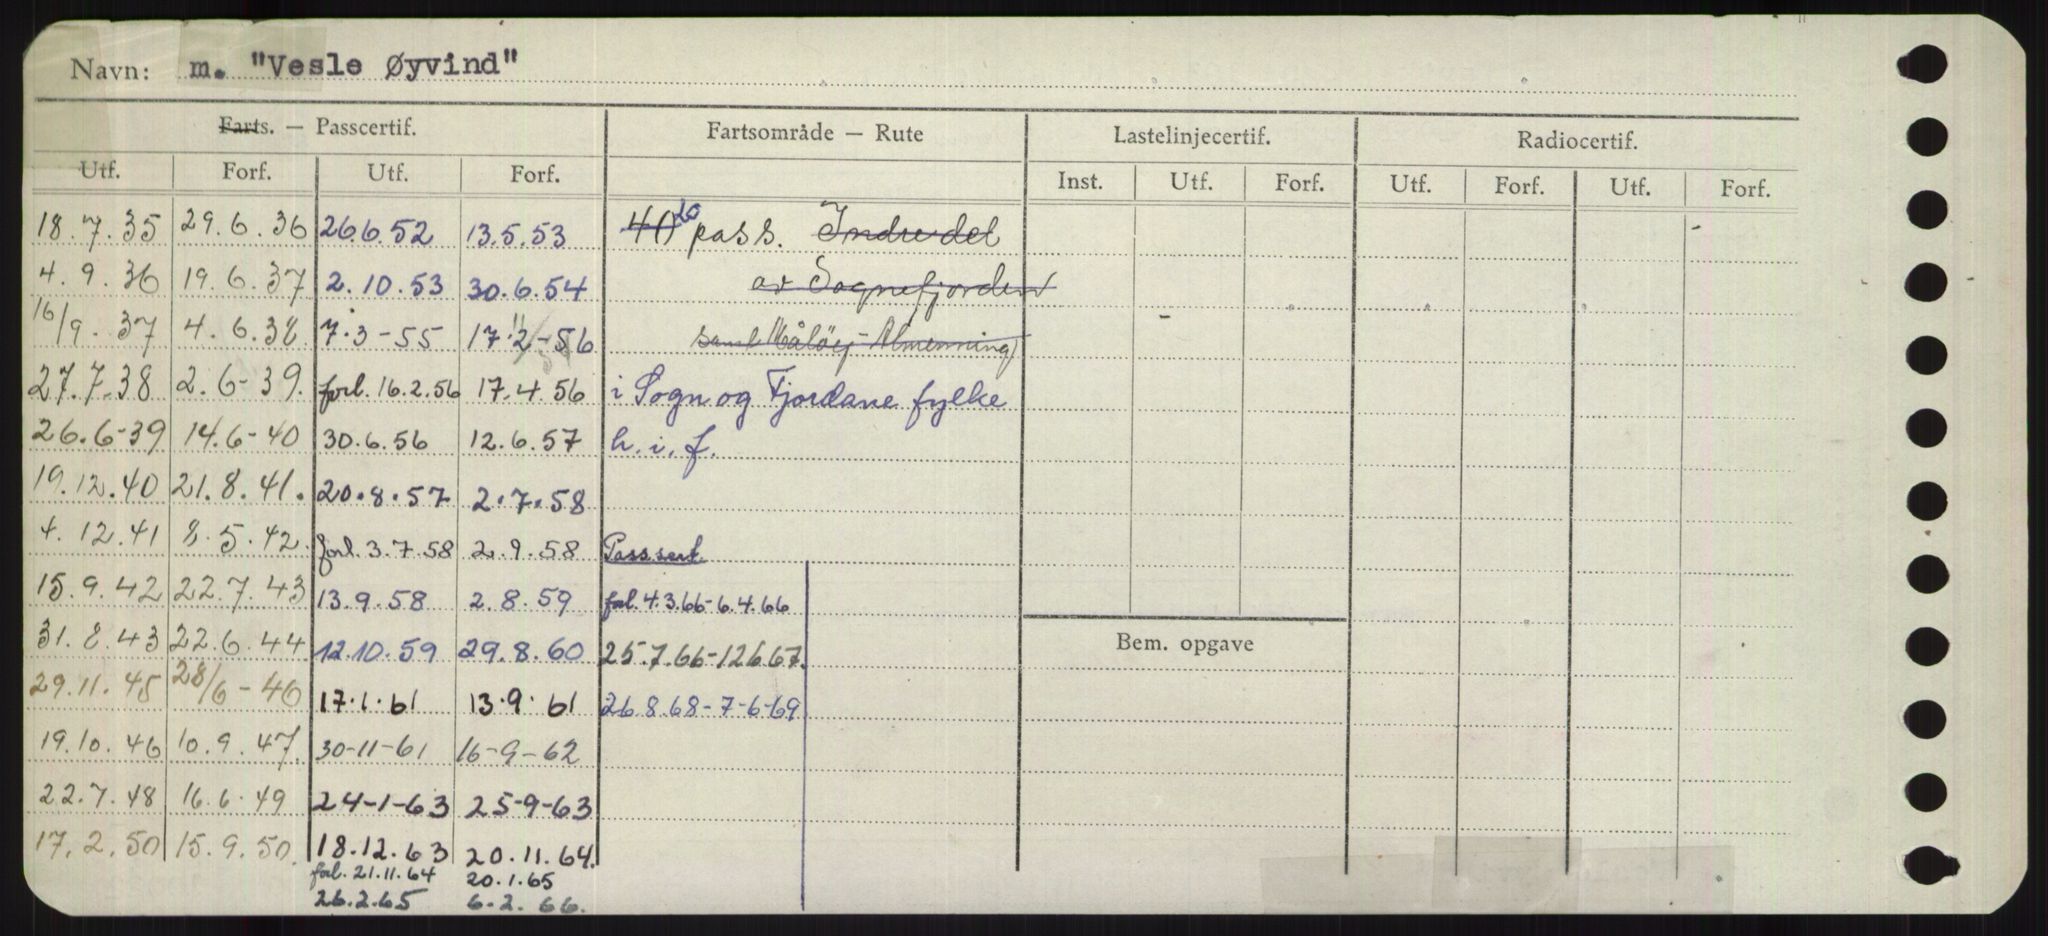 Navn: m. "Vesle Øyvind"
Farts. — Passcertif. Fartsområde — Rute Lastelinjecertif. Radiocertif.
Utf. Forf. Utf. Forf. Inst. Utf. Forf. Utf. Forf. Utf. Forf.
18.7.35 29.6.36 26.6.52 13.5.53 40 20 pass. Indre del
4.9.36 19.6.37 2.10.53 30.6.54 av Sognefjorden
16/9.37 4.6.38 7.3-55 17.2-56 samt Måløy-Almenning
27.7.38 2.6-39. forl. 16.2.56 17.4.56 i Sogn og Fjordane fylke
26.6-39 14.6-40 30.6.56 12.6.57 h.i.f.
19.12.40 21.8.41. 20.8.57 2.7.58
4.12.41 8.5.42. forl. 3.7.58 2.9.58 Pass.sert.
15.9.42 22.7.43 13.9.58 2.8.59 forl. 4.3.66-6.4.66
31.8.43 22.6.44 12.10.59 29.8.60 25.7.66-12.6.67. Bem. opgave
29.11.45 28/6-46 17.1.61 13.9.61 26.8.68-7-6-69
19.10.46 10.9.47. 30-11-61 16-9-62
22.7.48 16.6.49 24-1-63 25-9-63
17.2.50 15.9.50. 18.12.63 20.11.64.
forl. 21.11.64 20.1.65
26.2.65 6.2.66.